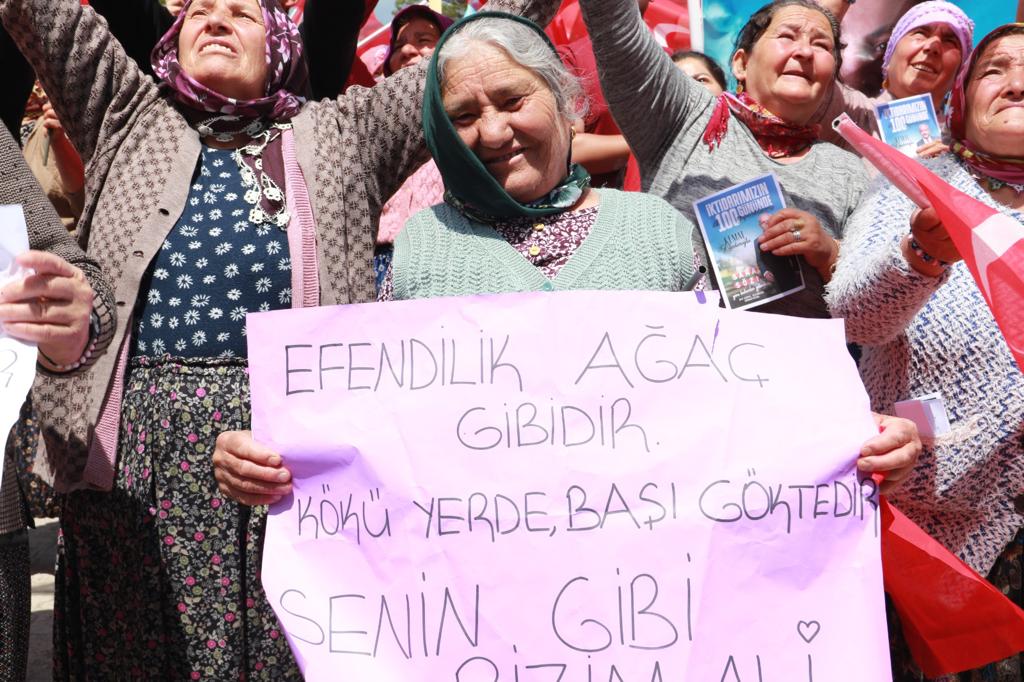 EFENDİLİK AĞAÇ
GİBİDİR.
KÖKÜ YERDE, BAŞI GÖKTEDİR
SENİN GİBİ
BİZİM ALİ
İKTİDARIMIZIN
100 GÜNÜNDE
KEMAL
İKTİDARIMIZIN
100 GÜNÜNDE